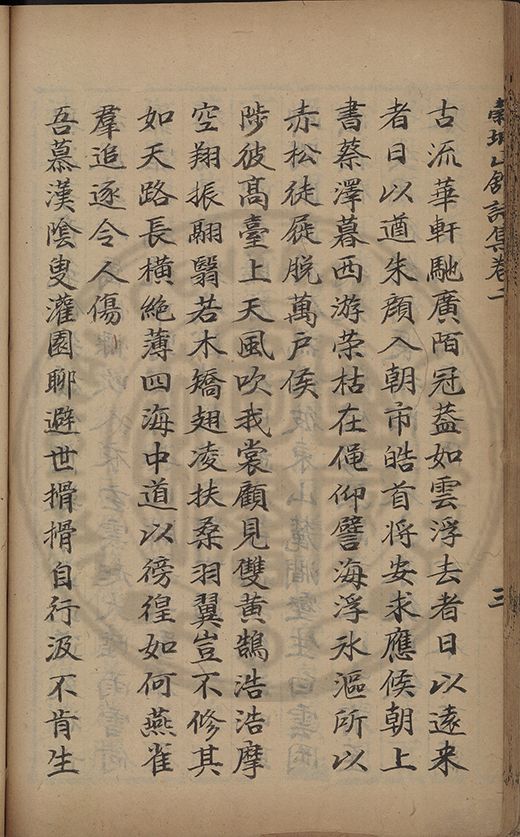 古流華軒馳廣陌冠葢如雲浮去者日以遠来
者日以遒朱顔入朝市皓首将安求應侯朝上
書蔡澤暮西游荣枯在俛仰譬海浮氷漚所以
赤松徒屣脱萬户侯
陟彼髙臺上天風吹我裳顧見雙黄鵠浩浩摩
空翔振翮翳若木矯翅凌扶桑羽翼豈不修其
如天路長横絶薄四海中道以徬徨如何燕雀
羣追逐令人傷
吾慕漢隂叟灌園聊避世搰搰自行汲不肯生
山館詩集卷一
三